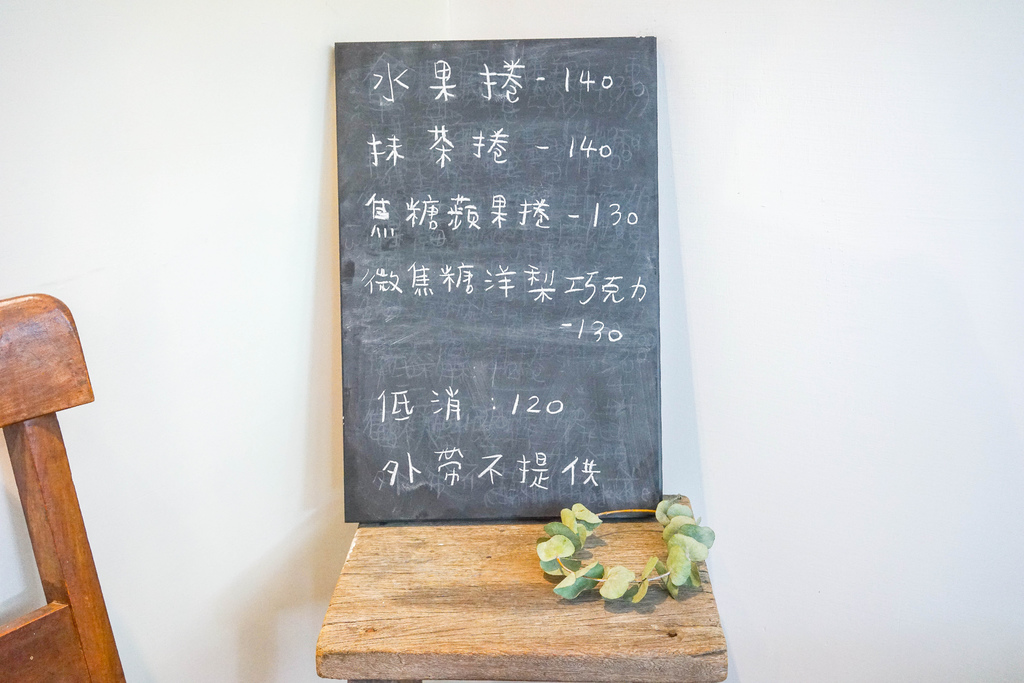 水果捲-140
抹茶捲-140
焦糖蘋果捲-130
微焦糖洋梨巧克力
-130
低消:120
外帶不提供